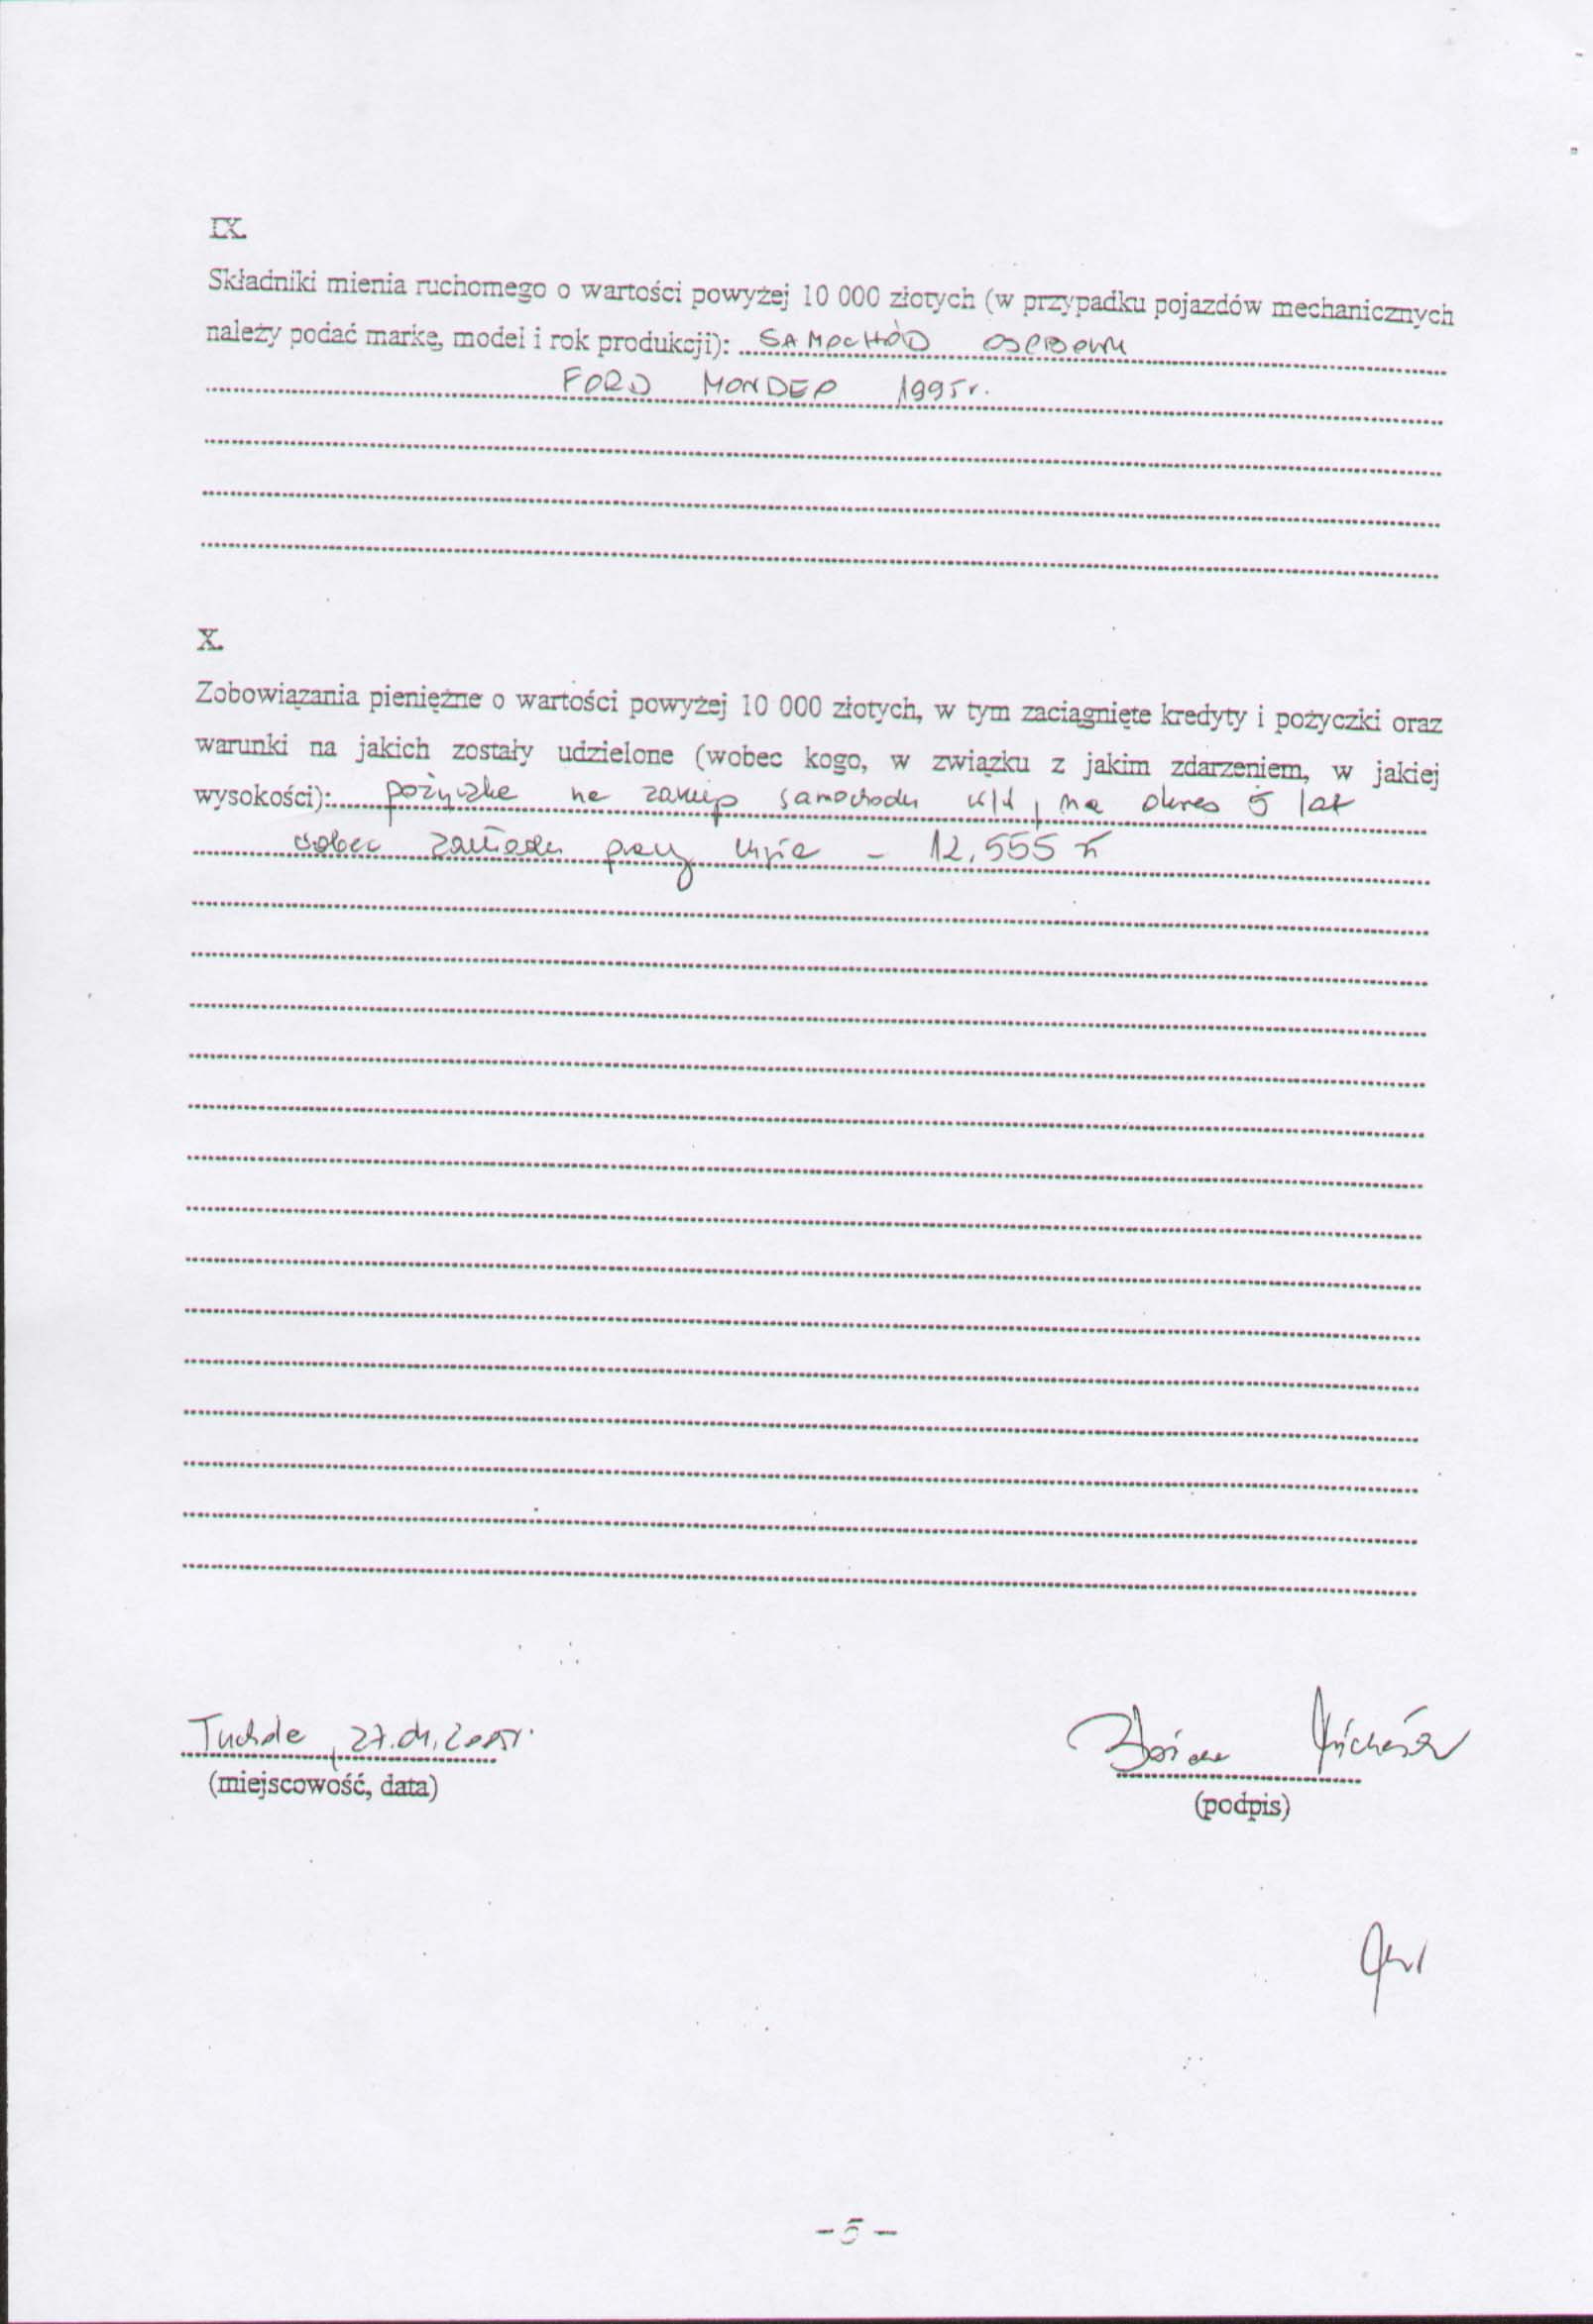 IX.
Składniki mienia ruchomego o wartości powyżej 10 000 złotych (w przypadku pojazdów mechanicznych
należy podać markę, model i rok produkcji): SAMOCHÓD OSOBOWY
FORD MONDEO 1995r.
X.
Zobowiązania pieniężne o wartości powyżej 10 000 złotych, w tym zaciągnięte kredyty i pożyczki oraz
warunki na jakich zostały udzielone (wobec kogo, w związku z jakim zdarzeniem, w jakiej
wysokości): pożyczka na zakup samochodu w/w, na okres 5 lat
wobec zakładu pracy – 12.555 zł
Tuchola, 27.04.2005r.
(miejscowość, data)
(podpis)
- 5 -